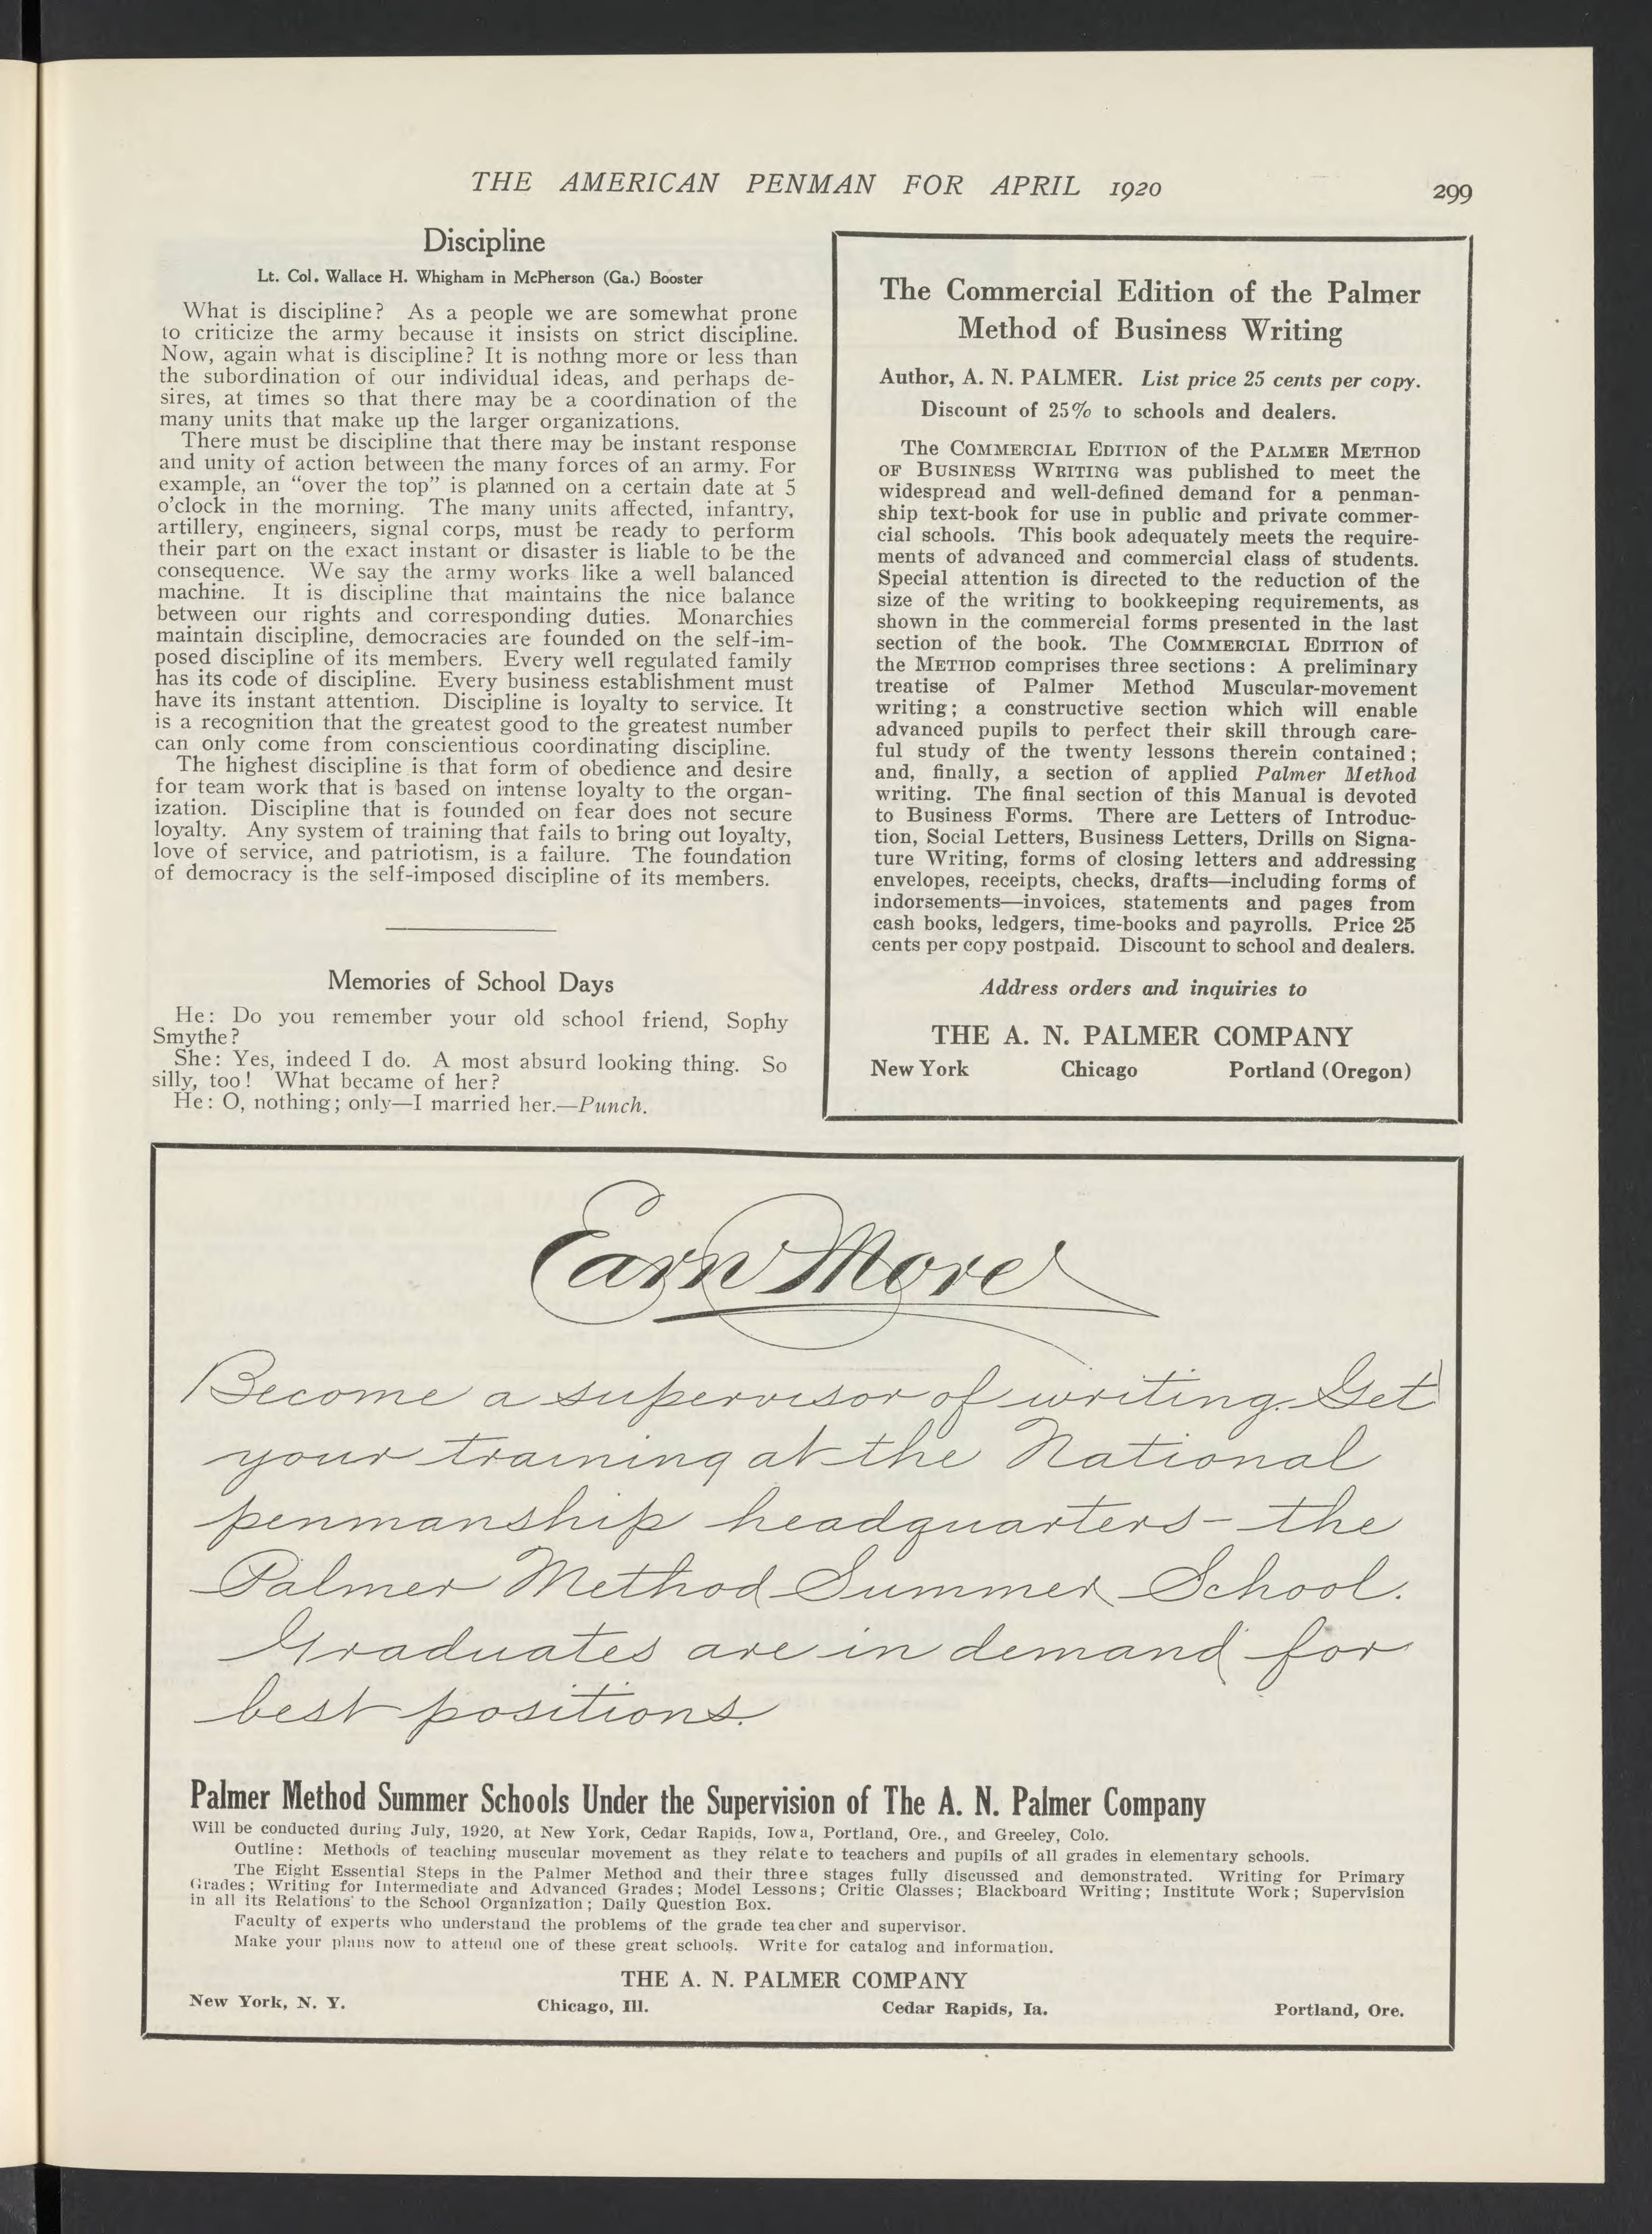 THE AMERICAN PENMAN FOR APRIL 1920
299
Discipline
Lt. Col. Wallace H. Whigham in McPherson (Ga.) Booster
What is discipline? As a people we are somewhat prone
to criticize the army because it insists on strict discipline.
Now, again what is discipline? It is nothng more or less than
the subordination of our individual ideas, and perhaps de-
sires, at times so that there may be a coordination of the
many units that make up the larger organizations.
There must be discipline that there may be instant response
and unity of action between the many forces of an army. For
example, an “over the top” is planned on a certain date at 5
o'clock in the morning. The many units affected, infantry,
artillery, engineers, signal corps, must be ready to perform
their part on the exact instant or disaster is liable to be the
consequence. We say the army works like a well balanced
machine. It is discipline that maintains the nice balance
between our rights and corresponding duties. Monarchies
maintain discipline, democracies are founded on the self-im-
posed discipline of its members. Every well regulated family
has its code of discipline. Every business establishment must
have its instant attention. Discipline is loyalty to service. It
is a recognition that the greatest good to the greatest number
can only come from conscientious coordinating discipline.
The highest discipline is that form of obedience and desire
for team work that is based on intense loyalty to the organ-
ization. Discipline that is founded on fear does not secure
loyalty. Any system of training that fails to bring out loyalty,
love of service, and patriotism, is a failure. The foundation
of democracy is the self-imposed discipline of its members.
Memories of School Days
He: Do you remember your old school friend, Sophy
Smythe?
She: Yes, indeed I do. A most absurd looking thing. So
silly, too! What became of her?
He: O, nothing; only—I married her.—Punch.
The Commercial Edition of the Palmer
Method of Business Writing
Author, A. N. PALMER. List price 25 cents per copy.
Discount of 25% to schools and dealers.
The COMMERCIAL EDITION of the PALMER METHOD
OF BUSINESS WRITING was published to meet the
widespread and well-defined demand for a penman-
ship text-book for use in public and private commer-
cial schools. This book adequately meets the require-
ments of advanced and commercial class of students.
Special attention is directed to the reduction of the
size of the writing to bookkeeping requirements, as
shown in the commercial forms presented in the last
section of the book. The COMMERCIAL EDITION of
the METHOD comprises three sections: A preliminary
treatise of Palmer Method Muscular-movement
writing; a constructive section which will enable
advanced pupils to perfect their skill through care-
ful study of the twenty lessons therein contained;
and, finally, a section of applied Palmer Method
writing. The final section of this Manual is devoted
to Business Forms. There are Letters of Introduc-
tion, Social Letters, Business Letters, Drills on Signa-
ture Writing, forms of closing letters and addressing
envelopes, receipts, checks, drafts—including forms of
indorsements—invoices, statements and pages from
cash books, ledgers, time-books and payrolls. Price 25
cents per copy postpaid. Discount to school and dealers.
Address orders and inquiries to
THE A. N. PALMER COMPANY
New York Chicago Portland (Oregon)
Earn More
Become a supervisor of writing. Get
your training at the National
penmanship headquarters - the
Palmer Method Summer School.
Graduates are in demand for
best positions.
Palmer Method Summer Schools Under the Supervision of The A. N. Palmer Company
Will be conducted during July, 1920, at New York, Cedar Rapids, Iowa, Portland, Ore., and Greeley, Colo.
Outline: Methods of teaching muscular movement as they relate to teachers and pupils of all grades in elementary schools.
The Eight Essential Steps in the Palmer Method and their three stages fully discussed and demonstrated. Writing for Primary
Grades; Writing for Intermediate and Advanced Grades; Model Lessons; Critic Classes; Blackboard Writing; Institute Work; Supervision
in all its Relations to the School Organization; Daily Question Box.
Faculty of experts who understand the problems of the grade teacher and supervisor.
Make your plans now to attend one of these great schools. Write for catalog and information.
THE A. N. PALMER COMPANY
New York, N. Y. Chicago, Ill. Cedar Rapids, Ia. Portland, Ore.